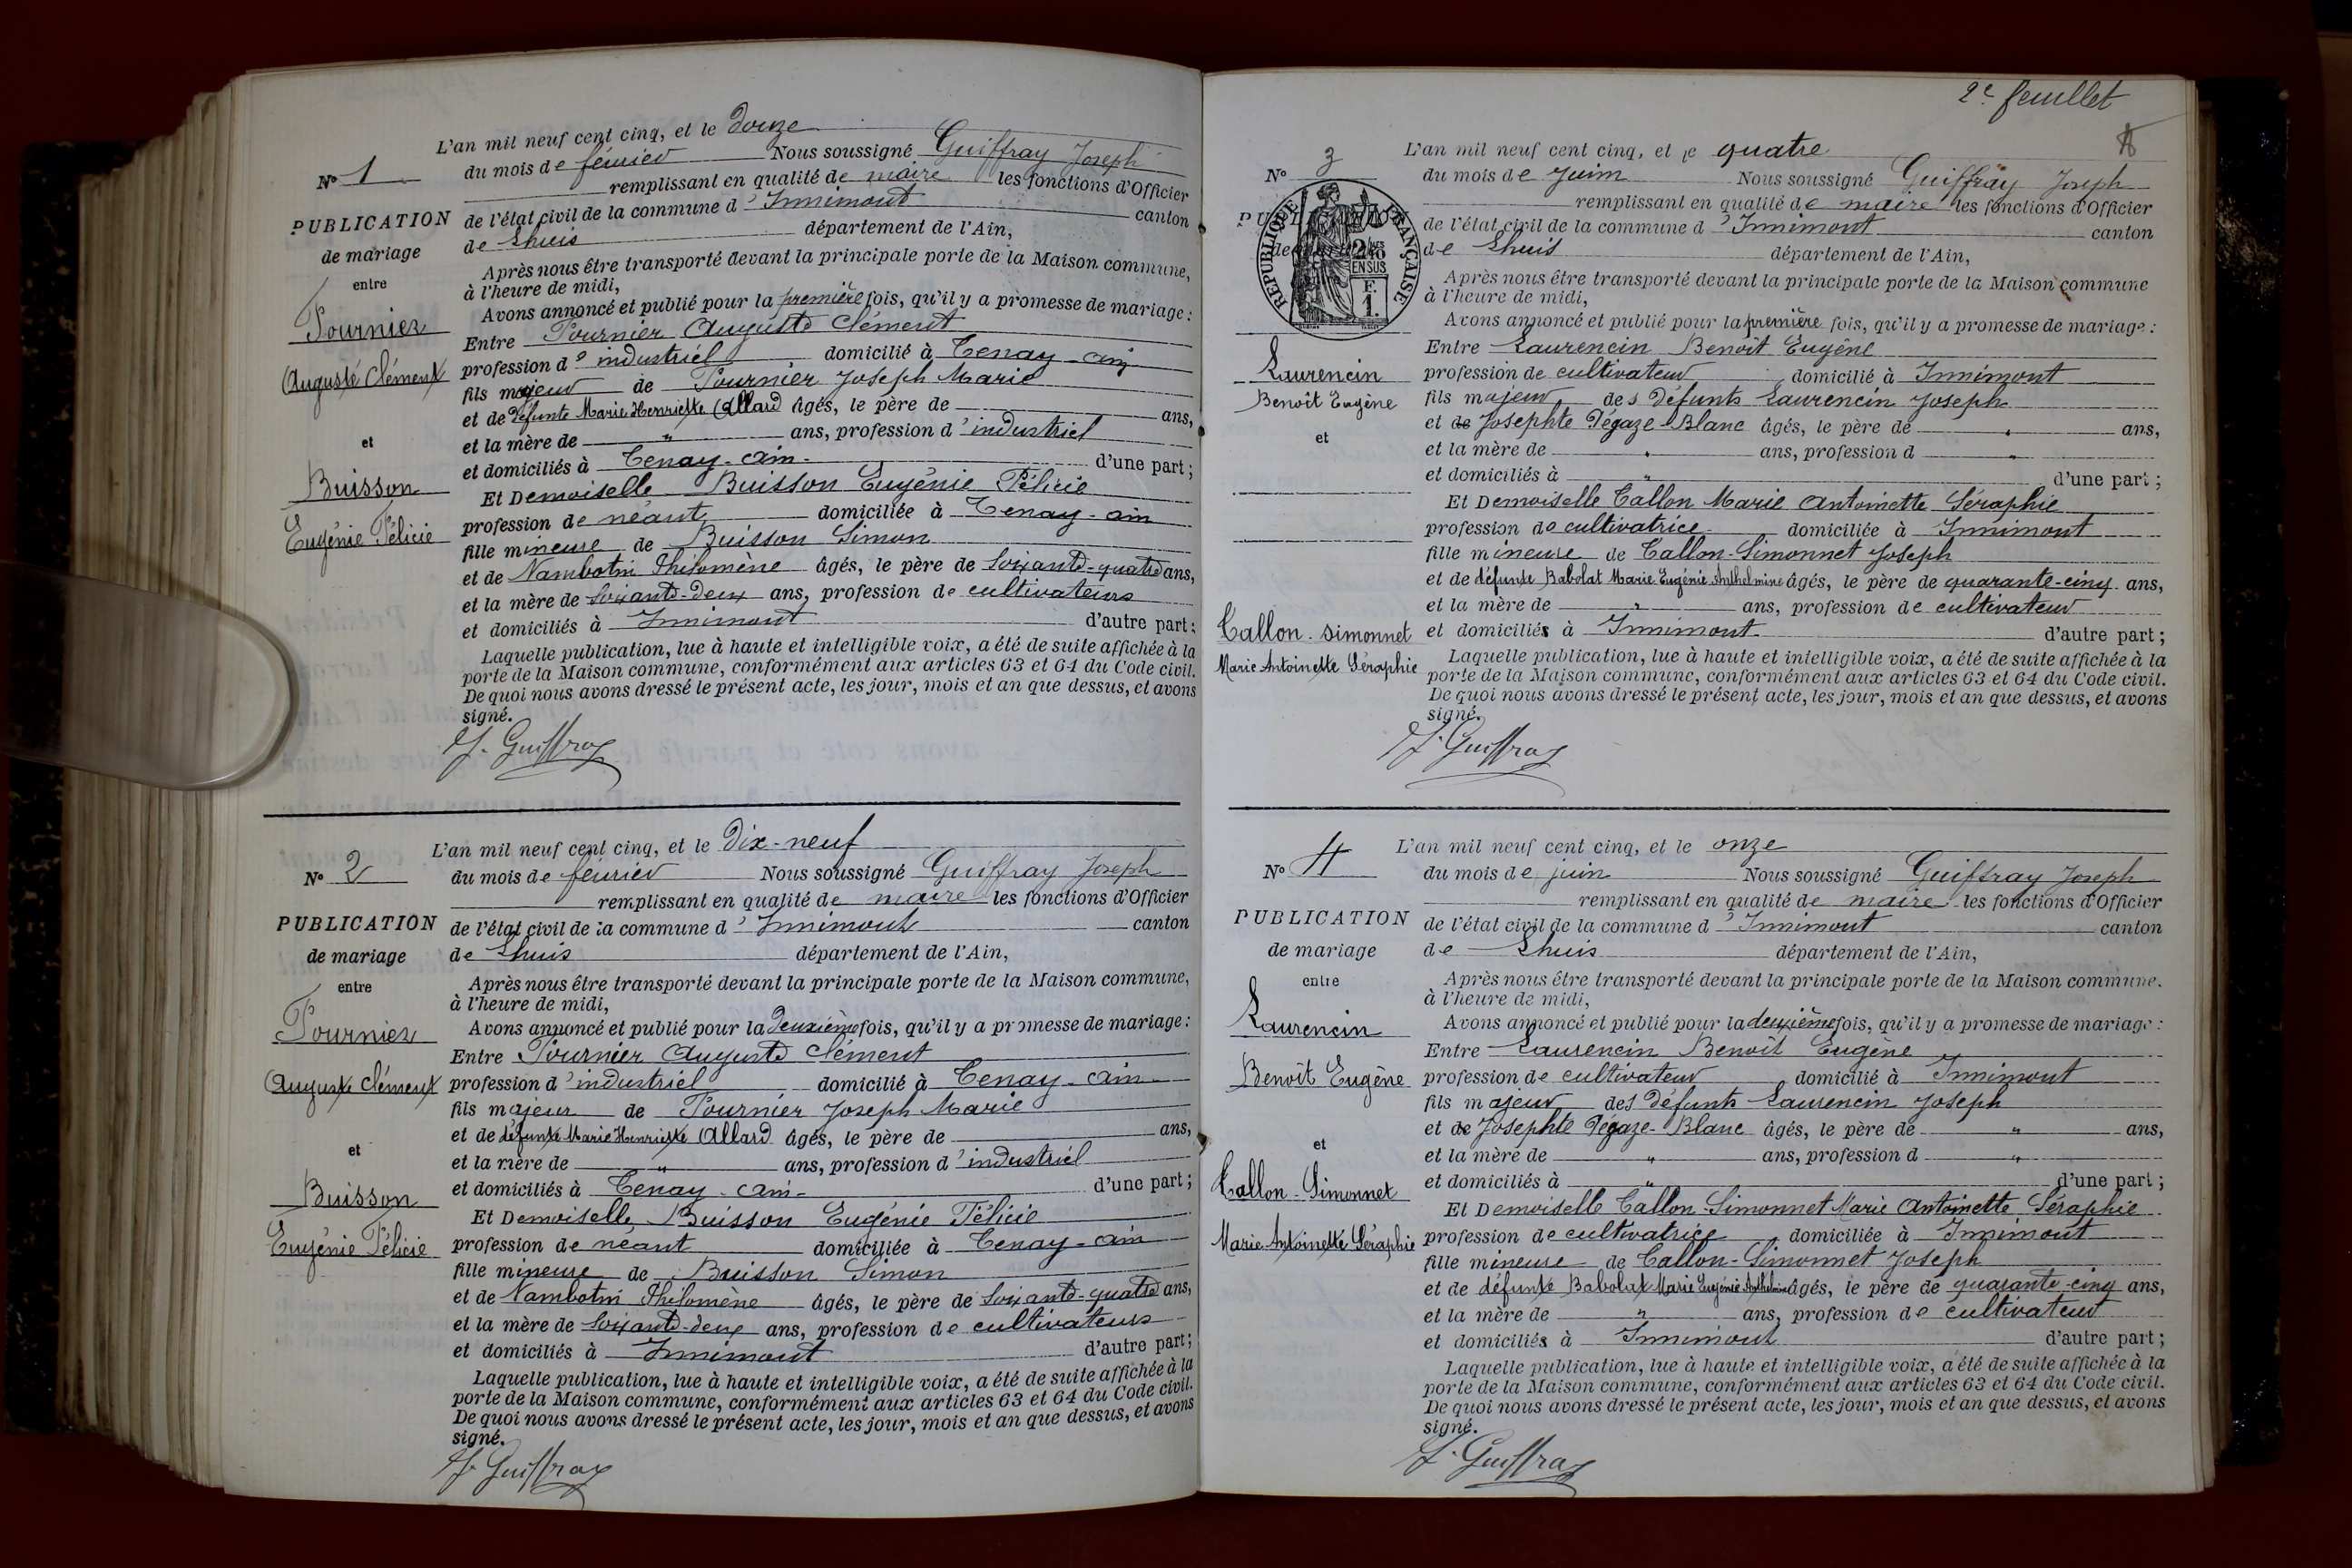 L'an mil neuf cent cinq, et le douze
du mois de février Nous soussigné Guiffray Joseph
N° 1
remplissant en qualité de maire les fonctions d'Officier
PUBLICATION
de l'état civil de la commune d'Innimont canton
de mariage
de Lhuis département de l'Ain,
entre
Après nous être transporté devant la principale porte de la Maison commune,
à l'heure de midi,
Avons annoncé et publié pour la première fois, qu'il y a promesse de mariage :
Fournier
Entre Fournier Auguste Clément
Auguste Clément
profession d'industriel domicilié à Tenay - ain
fils majeur de Fournier Joseph Marie
et de défunte Marie Henriette Allard âgés, le père de ans,
et
et la mère de " ans, profession d'industriel
et domiciliés à Tenay - Ain - d'une part ;
Buisson
Et Demoiselle Buisson Eugénie Félicie
profession de néant domiciliée à Tenay - ain
Eugénie Félicie
fille mineure de Buisson Simon
et de Nambotin Philomène âgés, le père de soixante-quatre ans,
et la mère de soixante-deux ans, profession de cultivateurs
et domiciliés à Innimont d'autre part ;
Laquelle publication, lue à haute et intelligible voix, a été de suite affichée à la
porte de la Maison commune, conformément aux articles 63 et 64 du Code civil.
De quoi nous avons dressé le présent acte, les jour, mois et an que dessus, et avons
signé.
J. Guiffray
L'an mil neuf cent cinq, et le Dix-neuf
N° 2
du mois de février Nous soussigné Guiffray Joseph
remplissant en qualité de maire les fonctions d'Officier
PUBLICATION
de l'état civil de la commune d'Innimont canton
de mariage
de Lhuis département de l'Ain,
entre
Après nous être transporté devant la principale porte de la Maison commune,
à l'heure de midi,
Avons annoncé et publié pour la deuxième fois, qu'il y a promesse de mariage :
Fournier
Entre Fournier Auguste Clément
Auguste Clément
profession d'industriel domicilié à Tenay - Ain -
fils majeur de Fournier Joseph Marie
et de défunte Marie Henriette Allard âgés, le père de ans,
et
et la mère de " ans, profession d'industriel
et domiciliés à Tenay - Ain - d'une part ;
Buisson
Et Demoiselle Buisson Eugénie Félicie
Eugénie Félicie
profession de néant domiciliée à Tenay - ain
fille mineure de Buisson Simon
et de Nambotin Philomène âgés, le père de soixante-quatre ans,
et la mère de soixante-deux ans, profession de cultivateurs
et domiciliés à Innimont d'autre part ;
Laquelle publication, lue à haute et intelligible voix, a été de suite affichée à la
porte de la Maison commune, conformément aux articles 63 et 64 du Code civil.
De quoi nous avons dressé le présent acte, les jour, mois et an que dessus, et avons
signé.
J. Guiffray
2e feuillet
L'an mil neuf cent cinq, et le quatre
N° 3
du mois de Juin Nous soussigné Guiffray Joseph
remplissant en qualité de maire les fonctions d'Officier
de l'état civil de la commune d'Innimont canton
de Lhuis département de l'Ain,
RÉPUBLIQUE FRANÇAISE
2/10 EN SUS
F. 1.
Après nous être transporté devant la principale porte de la Maison commune
à l'heure de midi,
Avons annoncé et publié pour la première fois, qu'il y a promesse de mariage :
Entre Laurencin Benoît Eugène
Laurencin
profession de cultivateur domicilié à Innimont
Benoît Eugène
fils majeur des défunts Laurencin Joseph
et de Josephte Pégaze-Blanc âgés, le père de " ans,
et
et la mère de " ans, profession d "
et domiciliés à " d'une part ;
Et Demoiselle Tallon Marie Antoinette Séraphie
profession de cultivatrice domiciliée à Innimont
fille mineure de Tallon-Simonnet Joseph
et de défunte Babolat Marie Eugénie Anthelmine âgés, le père de quarante-cinq ans,
et la mère de " ans, profession de cultivateur
Tallon - Simonnet
et domiciliés à Innimont d'autre part ;
Marie Antoinette Séraphie
Laquelle publication, lue à haute et intelligible voix, a été de suite affichée à la
porte de la Maison commune, conformément aux articles 63 et 64 du Code civil.
De quoi nous avons dressé le présent acte, les jour, mois et an que dessus, et avons
signé.
J. Guiffray
L'an mil neuf cent cinq, et le onze
N° 4
du mois de juin Nous soussigné Guiffray Joseph
remplissant en qualité de maire les fonctions d'Officier
PUBLICATION
de l'état civil de la commune d'Innimont canton
de mariage
de Lhuis département de l'Ain,
entre
Après nous être transporté devant la principale porte de la Maison commune.
à l'heure de midi,
Laurencin
Avons annoncé et publié pour la deuxième fois, qu'il y a promesse de mariage :
Entre Laurencin Benoît Eugène
Benoît Eugène
profession de cultivateur domicilié à Innimont
fils majeur des défunts Laurencin Joseph
et de Josephte Pégaze-Blanc âgés, le père de " ans,
et
et la mère de " ans, profession d "
Tallon - Simonnet
et domiciliés à " d'une part ;
Et Demoiselle Tallon-Simonnet Marie Antoinette Séraphie
Marie Antoinette Séraphie
profession de cultivatrice domiciliée à Innimont
fille mineure de Tallon-Simonnet Joseph
et de défunte Babolat Marie Eugénie Anthelmine âgés, le père de quarante-cinq ans,
et la mère de " ans, profession de cultivateur
et domiciliés à Innimont d'autre part ;
Laquelle publication, lue à haute et intelligible voix, a été de suite affichée à la
porte de la Maison commune, conformément aux articles 63 et 64 du Code civil.
De quoi nous avons dressé le présent acte, les jour, mois et an que dessus, et avons
signé.
J. Guiffray